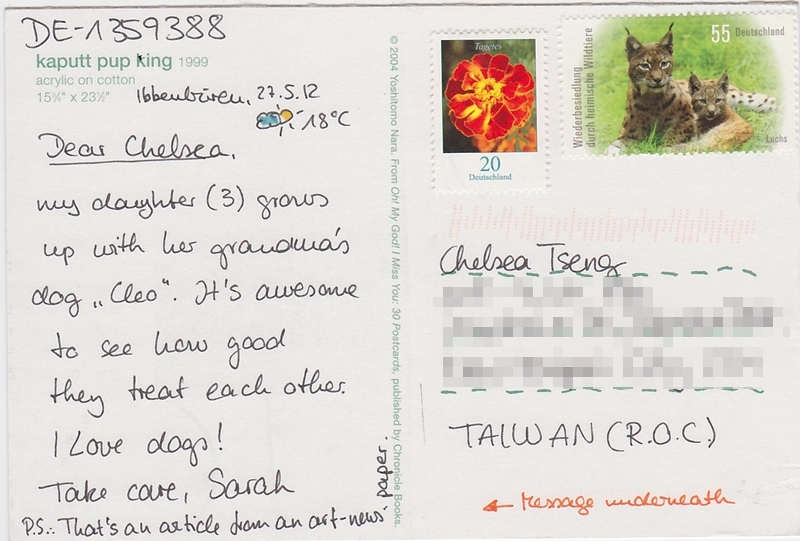 DE-1359388
kaputt pup king 1999
acrylic on cotton
15¾" x 23½"
Ibbenbüren, 27.5.12
18°C
Dear Chelsea,
my daughter (3) grows
up with her grandma's
dog „Cleo". It's awesome
to see how good
they treat each other.
I Love dogs!
Take care, Sarah
P.S.: That's an article from an art-news-
paper.
© 2004 Yoshitomo Nara. From Oh! My God! I Miss You: 30 Postcards, published by Chronicle Books.
Tagetes
20
Deutschland
55 Deutschland
Wiederbesiedlung
durch heimische Wildtiere
Luchs
Chelsea Tseng
TAIWAN (R.O.C.)
← Message underneath